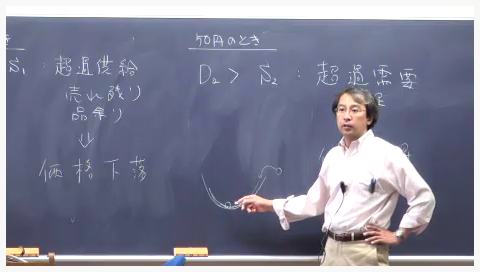 S₁ : 超過供給
売れ残り
品余り
⇓
価格下落
50円のとき
D₂ > S₂ : 超過需要